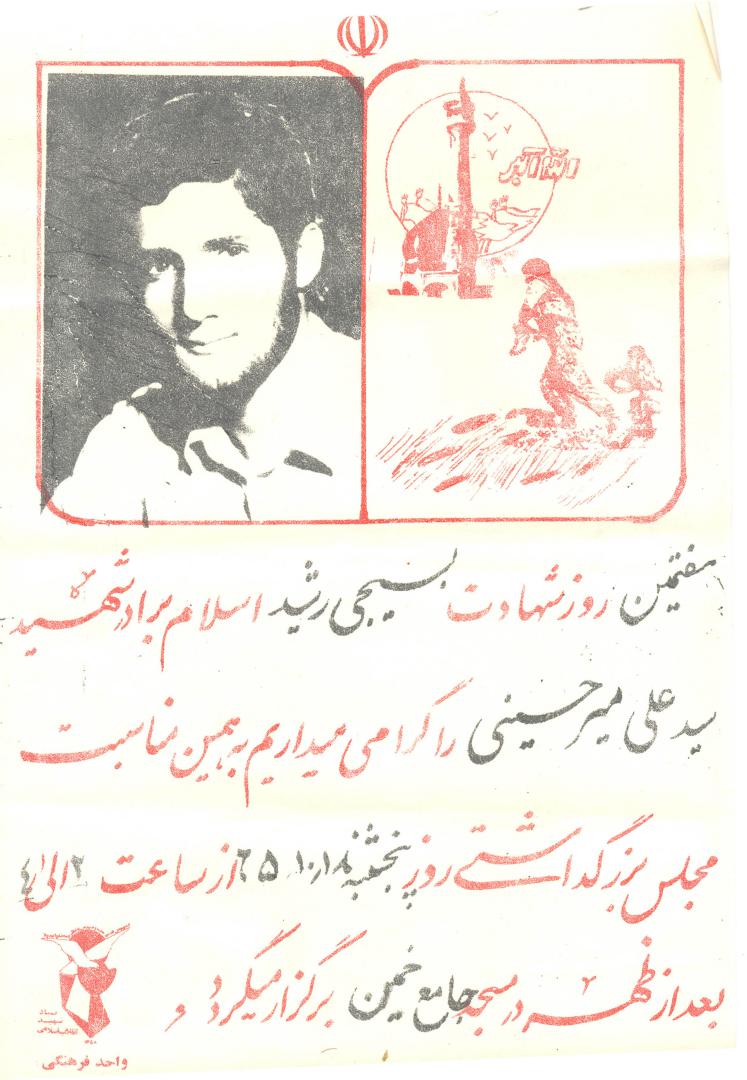 الله اکبر
هفتمین روز شهادت بسیجی رشید اسلام برادر شهید
سید علی میرحسینی را گرامی میداریم به همین مناسبت
مجلس بزرگداشتی روز پنجشنبه از ساعت ۲ الی ۴
بعد از ظهر در مسجد جامع خمین برگزار میگردد
بنیاد شهید انقلاب اسلامی
واحد فرهنگی